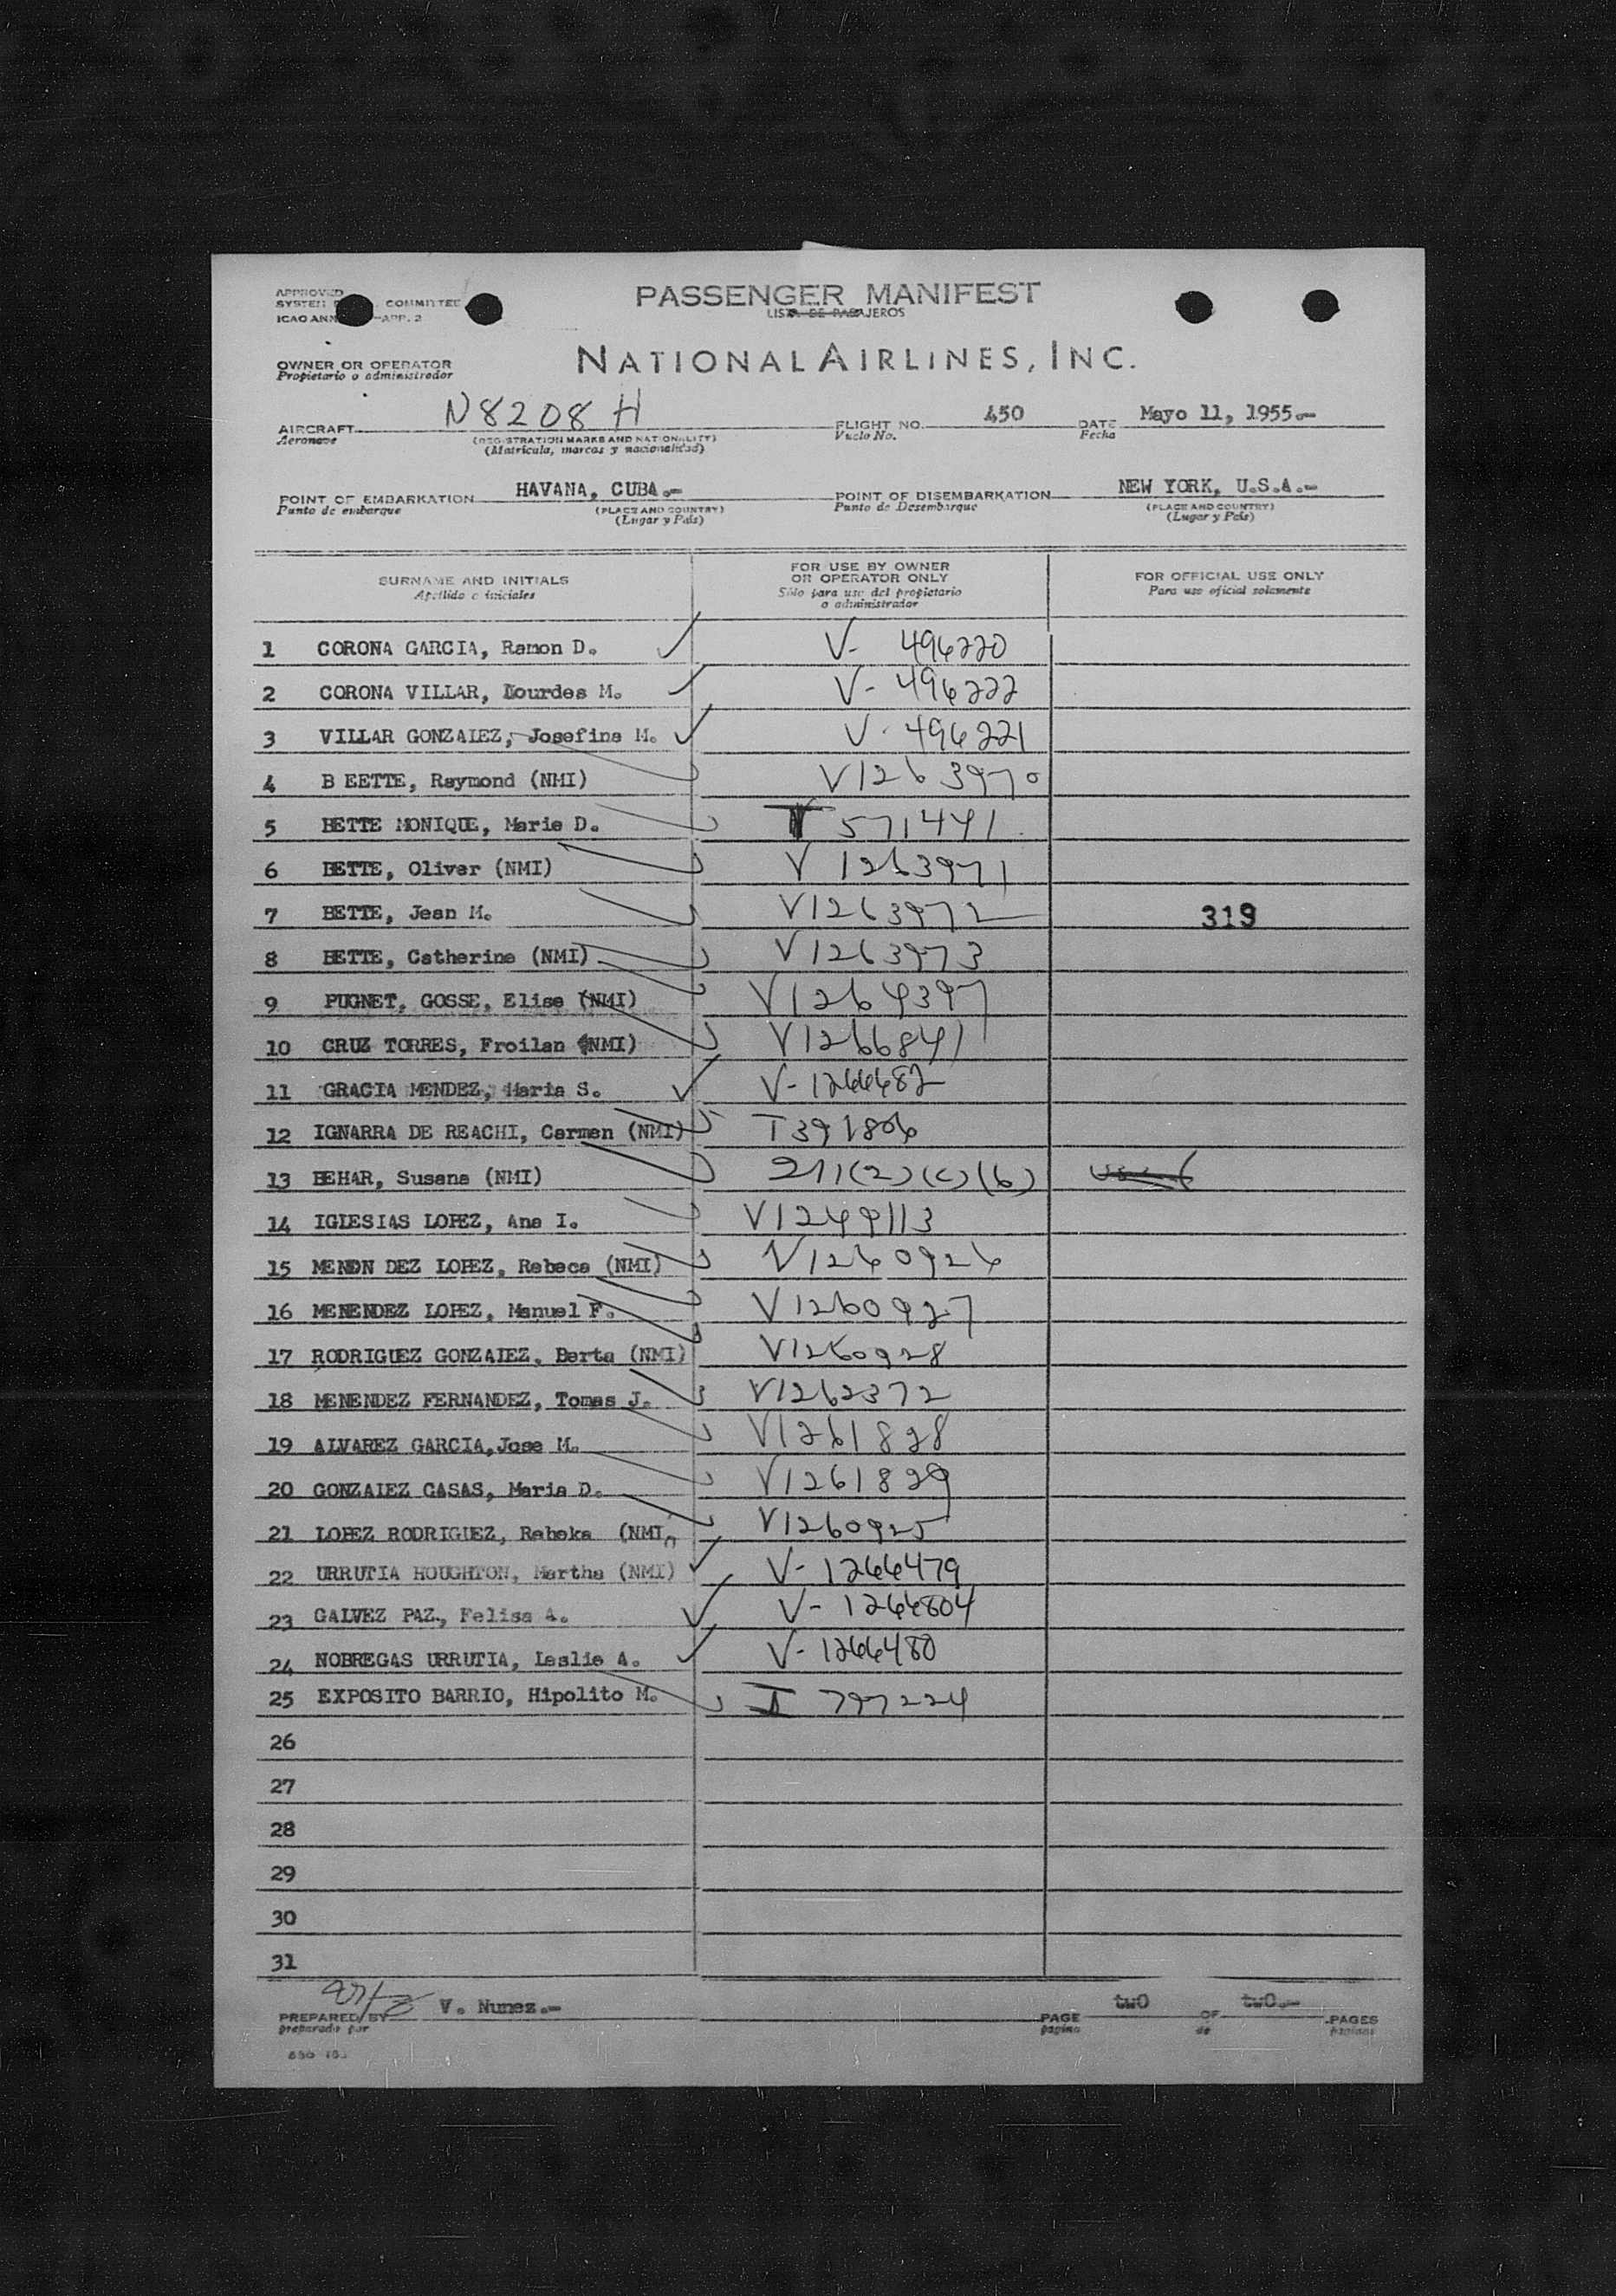 APPROVED
SYSTEM COMMITTEE
ICAO ANN -APP. 2
PASSENGER MANIFEST
LISTA DE PASAJEROS
OWNER OR OPERATOR
Propietario o administrador
NATIONAL AIRLINES, INC.
AIRCRAFT N8208H FLIGHT NO. 450 DATE Mayo 11, 1955.-
Aeronave (REGISTRATION MARKS AND NATIONALITY) Vuelo No. Fecha
(Matrícula, marcas y nacionalidad)
POINT OF EMBARKATION HAVANA, CUBA.- POINT OF DISEMBARKATION NEW YORK, U.S.A.-
Punto de embarque (PLACE AND COUNTRY) Punto de Desembarque (PLACE AND COUNTRY)
(Lugar y País) (Lugar y País)
SURNAME AND INITIALS FOR USE BY OWNER OR OPERATOR ONLY FOR OFFICIAL USE ONLY
Apellido e iniciales Sólo para uso del propietario o administrador Para uso oficial solamente
1 CORONA GARCIA, Ramon D. V- 496220
2 CORONA VILLAR, Lourdes M. V- 496222
3 VILLAR GONZALEZ, Josefina M. V- 496221
4 B EETTE, Raymond (NMI) V1263970
5 BETTE MONIQUE, Marie D. T 571441
6 BETTE, Oliver (NMI) V 1263971
7 BETTE, Jean M. V1263972 319
8 BETTE, Catherine (NMI) V1263973
9 PUGNET, GOSSE, Elise (NMI) V1264397
10 CRUZ TORRES, Froilan (NMI) V1266841
11 GRACIA MENDEZ, Maria S. V-1266482
12 IGNARRA DE REACHI, Carmen (NMI) T391806
13 BEHAR, Susana (NMI) 211(2)(c)(b)
14 IGLESIAS LOPEZ, Ana I. V1249113
15 MENDN DEZ LOPEZ, Rebeca (NMI) V1260926
16 MENENDEZ LOPEZ, Manuel F. V1260927
17 RODRIGUEZ GONZALEZ, Berta (NMI) V1260928
18 MENENDEZ FERNANDEZ, Tomas J. V1262372
19 ALVAREZ GARCIA,Jose M. V1261828
20 GONZALEZ CASAS, Maria D. V1261829
21 LOPEZ RODRIGUEZ, Rebeka (NMI) V1260925
22 URRUTIA HOUGHTON, Martha (NMI) V- 1266479
23 GALVEZ PAZ., Felisa A. V- 1266804
24 NOBREGAS URRUTIA, Leslie A. V-1266480
25 EXPOSITO BARRIO, Hipolito M. T 797224
26
27
28
29
30
31
PREPARED BY V. Nunez.- PAGE two OF two.- PAGES
preparado por página de páginas